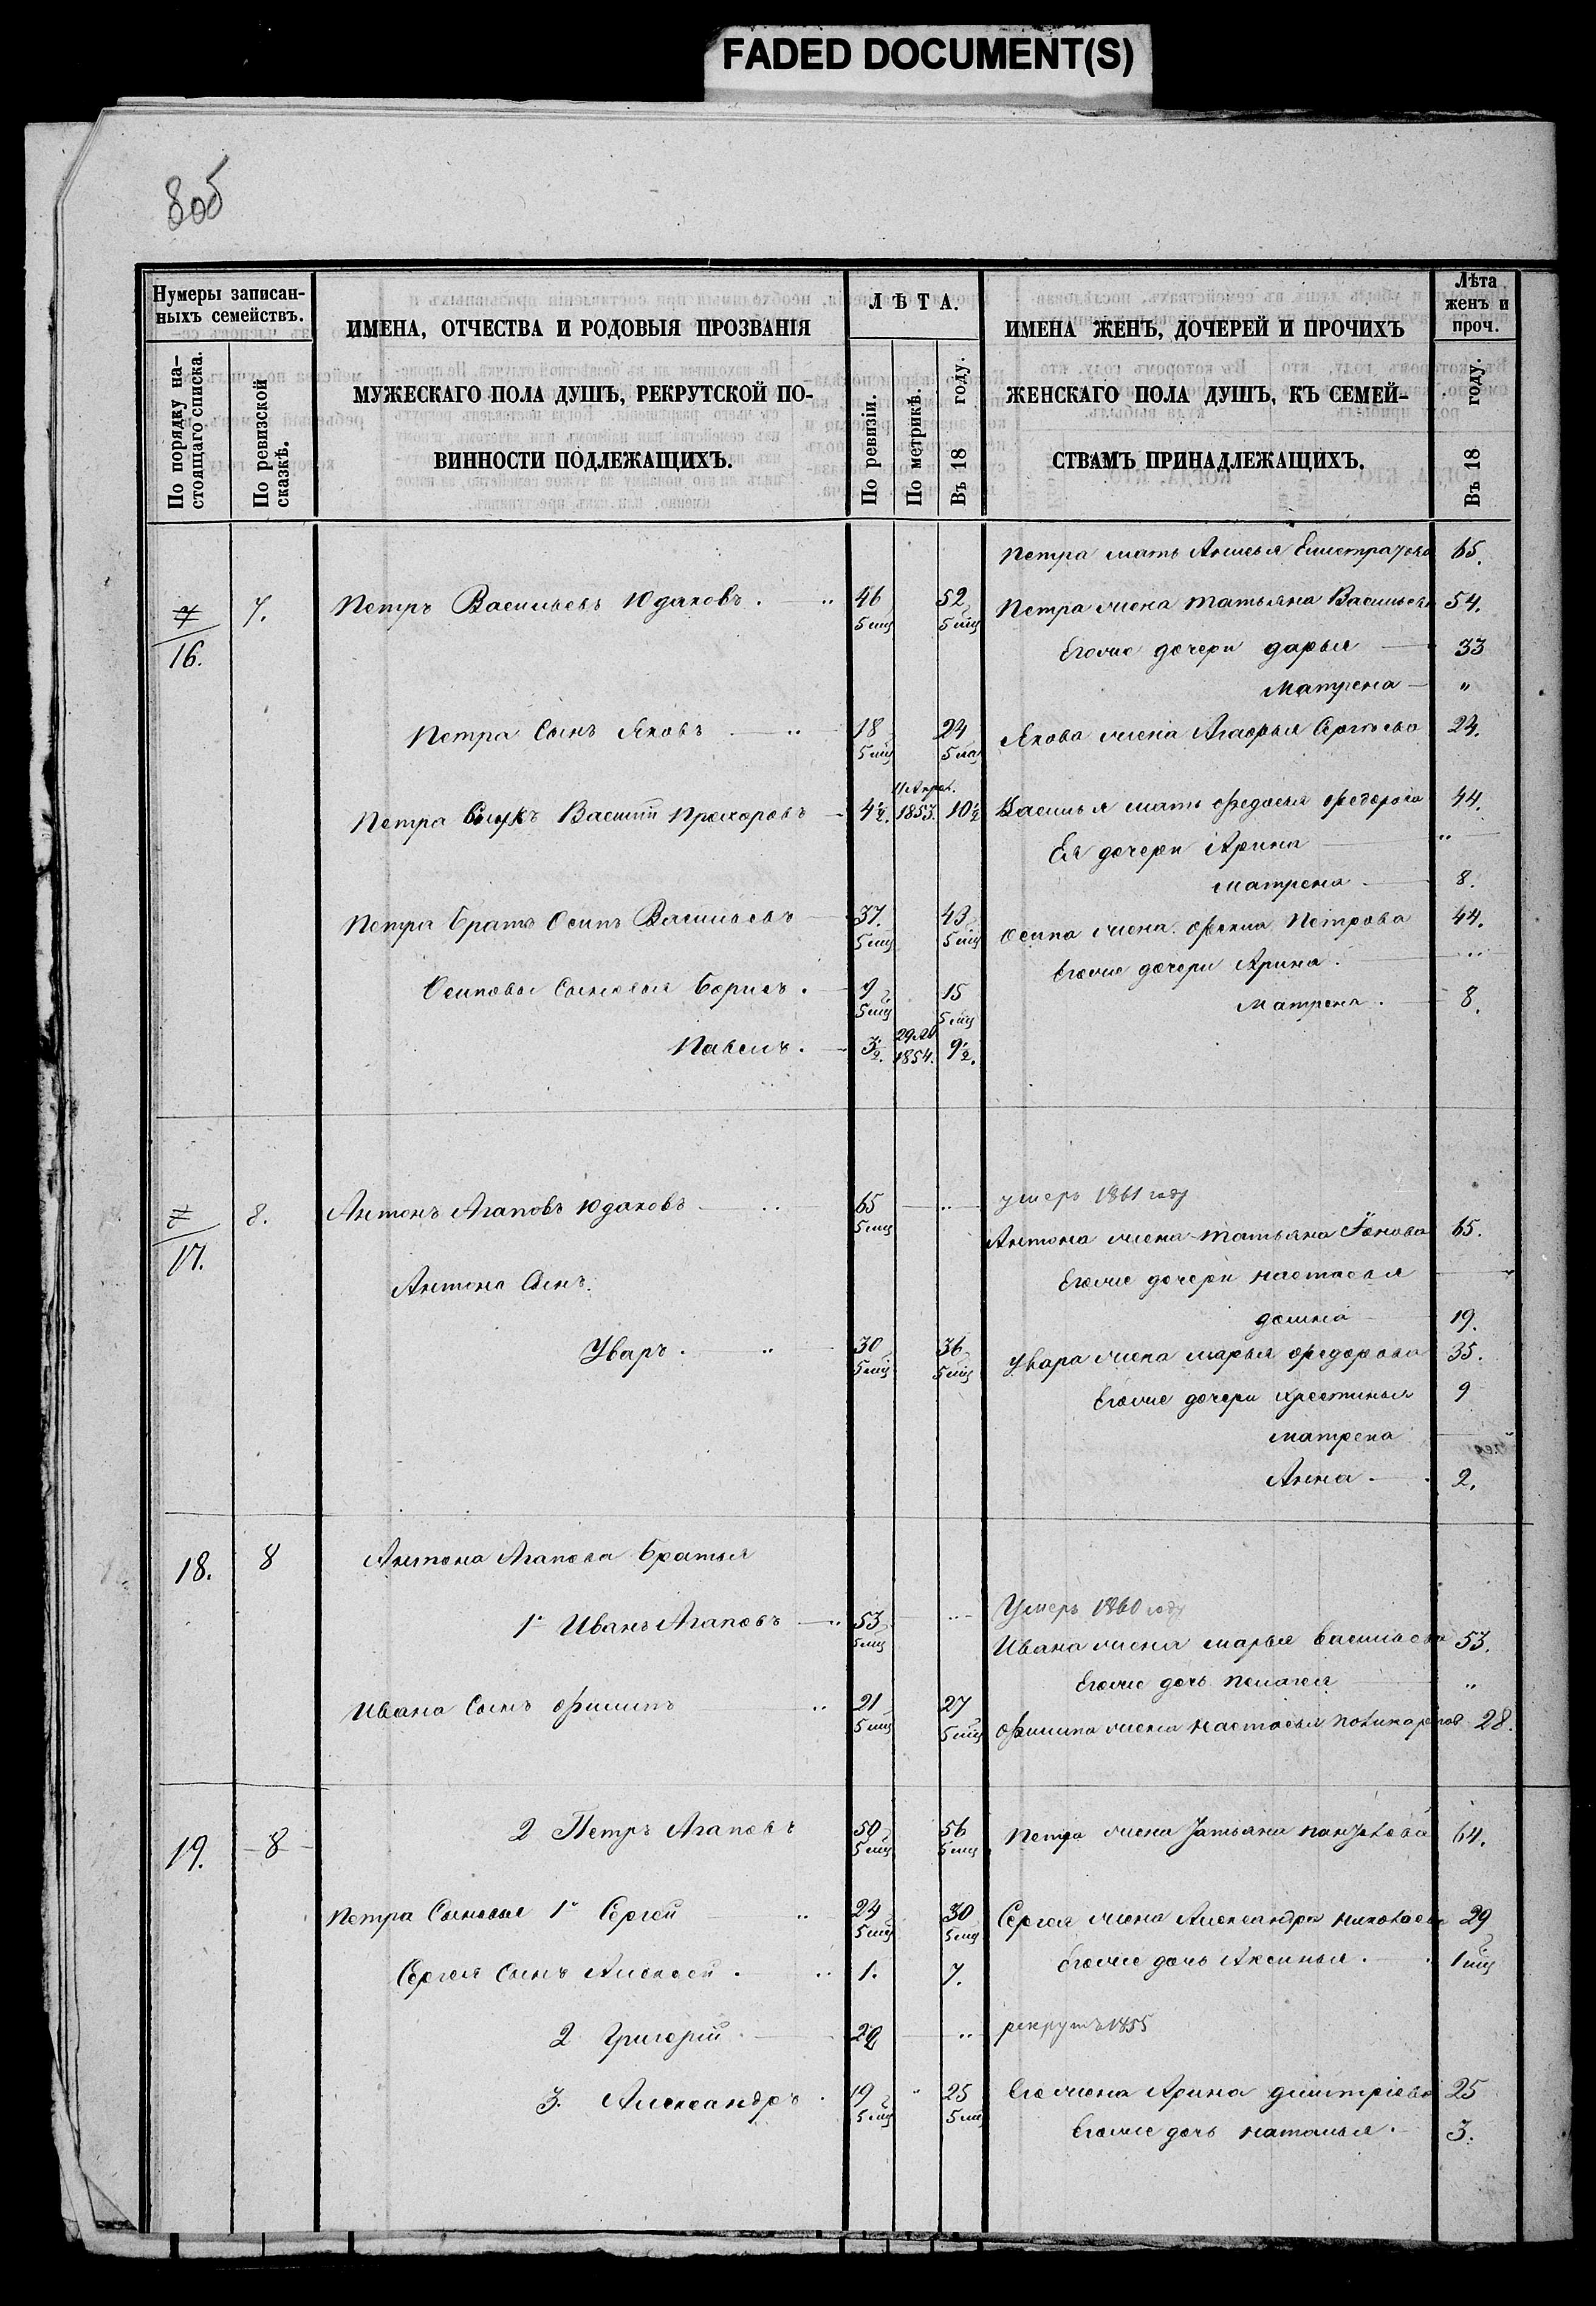 FADED DOCUMENT(S)
8об
Нумеры записан-
ныхъ семействъ.
По порядку на-
стоящаго списка.
По ревизской
сказкѣ.
ИМЕНА, ОТЧЕСТВА И РОДОВЫЯ ПРОЗВАНІЯ
МУЖЕСКАГО ПОЛА ДУШЪ, РЕКРУТСКОЙ ПО-
ВИННОСТИ ПОДЛЕЖАЩИХЪ.
ЛѢТА.
По ревизіи.
По метрикѣ.
Въ 18 году.
ИМЕНА ЖЕНЪ, ДОЧЕРЕЙ И ПРОЧИХЪ
ЖЕНСКАГО ПОЛА ДУШЪ, КЪ СЕМЕЙ-
СТВАМЪ ПРИНАДЛЕЖАЩИХЪ.
Лѣта
женъ и
проч.
Въ 18 году.
Петра мать 65.
7 16. 7. Петръ Васильевъ Юдаковъ. 46 5 мц 52 5 мц Петра жена Татьяна Васильев 54.
Егоже дочери Дарья 33
Матрена "
Петра Сынъ Яковъ 18 5 мц 24 5 мц Якова жена Агафья Сергѣева 24.
Петра Внукъ Василій Прохоровъ 4½. 11 Апрѣл. 1853. 10½ Василья мать Федосья Федорова 44.
Ея дочери Арина "
Матрена 8.
Петра Братъ Осипъ Васильевъ 37. 5 мц 43 5 мц Осипа жена Фекла Петрова 44.
Егоже дочери Арина. "
Осиповы Сыновья Борисъ. 9 5 мц 15 5 мц Матрена. 8.
Павелъ. 3½. 1854. 9½.
8 17. 8. Антонъ Агаповъ Юдаковъ 65 5 мц умеръ 1861 году
Антона жена Татьяна 65.
Антона Сынъ. Егоже дочери Настасья
Домна 19.
Уваръ. 30 5 мц 36 5 мц Увара жена Марья Федорова 35.
Егоже дочери Христинья 9
Матрена
Анна 2.
18. 8 Антона Агапова Братья
1й Иванъ Агаповъ 53 5 мц Умеръ 1860 году
Ивана жена Марья Васильева 53.
Егоже дочь Пелагея "
Ивана Сынъ Филипъ 21 5 мц 27 5 мц Филипа жена Настасья Поликарпов 28.
19. 8 2 Петръ Агаповъ 50 5 мц 56 5 мц Петра жена Татьяна 64.
Петра Сыновья 1й Сергей 24 5 мц 30 5 мц Сергея жена Александра Николаев 29
Сергея Сынъ Алексей. 1. 7. Егоже дочь Аксинья. 1 мц
2 Григорій 22 рекрутъ 1855
3. Александръ 19 5 мц 25 5 мц Его жена Арина Дмитріева 25
Егоже дочь Наталья. 3.